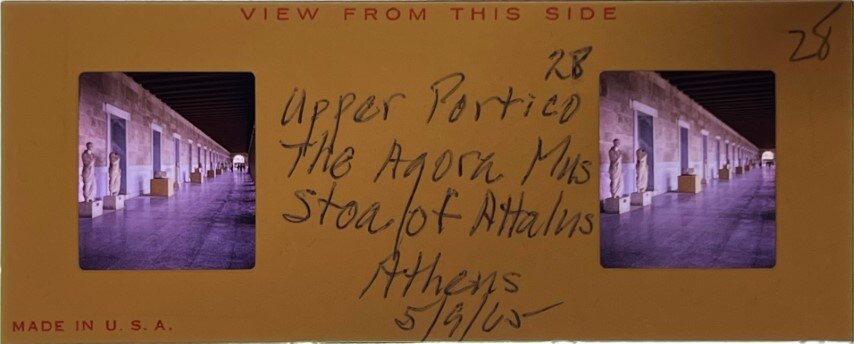 VIEW FROM THIS SIDE
28
28
Upper Portico
The Agora Mus
Stoa of Attalus
Athens
5/9/65
MADE IN U.S.A.